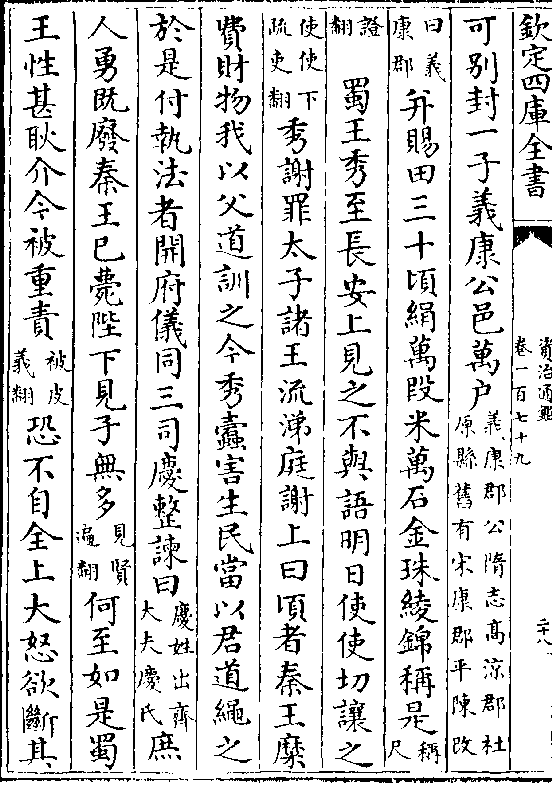 欽定四庫全書
資治通鑑
卷一百七十九
二十八
可别封一子義康公邑萬户義康郡公隋志髙涼郡杜原縣舊有宋康郡平陳改
曰義康郡并賜田三十頃絹萬段米萬石金珠綾錦稱是稱尺
證翻蜀王秀至長安上見之不與語明日使使切讓之
使使下疏吏翻秀謝罪太子諸王流涕庭謝上曰頃者秦王糜
費財物我以父道訓之今秀蠹害生民當以君道繩之
於是付執法者開府儀同三司慶整諫曰慶姓出齊大夫慶氏庶
人勇既廢秦王已薨陛下見子無多見賢遍翻何至如是蜀
王性甚耿介今被重責被皮義翻恐不自全上大怒欲斷其